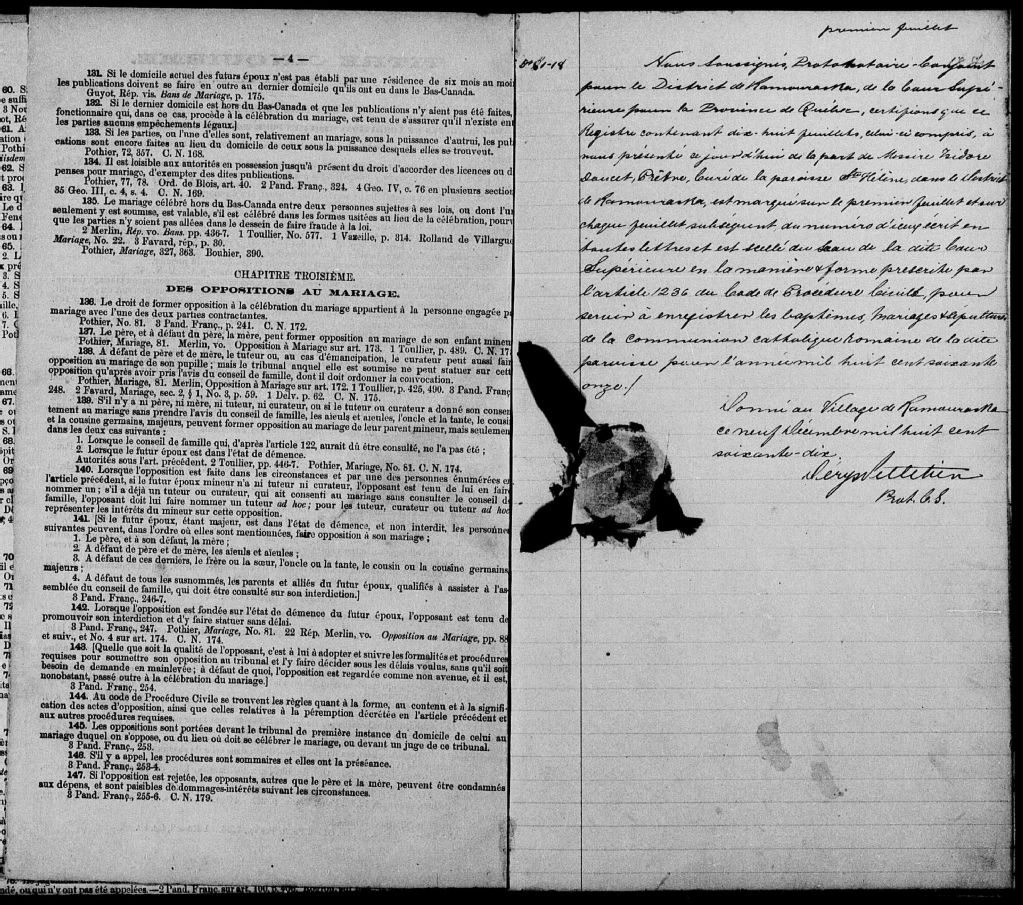 — 4 —
131. Si le domicile actuel des futurs époux n'est pas établi par une résidence de six mois au moi
les publications doivent se faire en outre au dernier domicile qu'ils ont eu dans le Bas-Canada.
Guyot, Rép. vis. Bans de Mariage, p. 175.
132. Si le dernier domicile est hors du Bas-Canada et que les publications n'y aient pas été faites,
fonctionnaire qui, dans ce cas, procède à la célébration du mariage, est tenu de s'assurer qu'il n'existe ent
les parties aucuns empêchements légaux.]
133. Si les parties, ou l'une d'elles sont, relativement au mariage, sous la puissance d'autrui, les pub
cations sont encore faites au lieu du domicile de ceux sous la puissance desquels elles se trouvent.
Pothier, 72, 357. C. N. 168.
134. Il est loisible aux autorités en possession jusqu'à présent du droit d'accorder des licences ou d
penses pour mariage, d'exempter des dites publications.
Pothier, 77, 78. Ord. de Blois, art. 40. 2 Pand. Franç., 324. 4 Geo. IV, c. 76 en plusieurs section
35 Geo. III, c. 4, s. 4. C. N. 169.
135. Le mariage célébré hors du Bas-Canada entre deux personnes sujettes à ses lois, ou dont l'un
seulement y est soumise, est valable, s'il est célébré dans les formes usitées au lieu de la célébration, pourv
que les parties n'y soient pas allées dans le dessein de faire fraude à la loi.
2 Merlin, Rép. vo. Bans pp. 436-7. 1 Toullier, No. 577. 1 Vazeille, p. 314. Rolland de Villargue
Mariage, No. 22. 3 Favard, rép., p. 30.
Pothier, Mariage, 327, 363. Bouhier, 390.
CHAPITRE TROISIÈME.
DES OPPOSITIONS AU MARIAGE.
136. Le droit de former opposition à la célébration du mariage appartient à la personne engagée p
mariage avec l'une des deux parties contractantes.
Pothier, No. 81. 3 Pand. Franç., p. 241. C. N. 172.
137. Le père, et à défaut du père, la mère, peut former opposition au mariage de son enfant mineur
Pothier, Mariage, 81. Merlin, vo. Opposition à Mariage sur art. 173. 1 Toullier, p. 489. C. N. 17
138. A défaut de père et de mère, le tuteur ou, au cas d'émancipation, le curateur peut aussi fair
opposition au mariage de son pupille; mais le tribunal auquel elle est soumise ne peut statuer sur cett
opposition qu'après avoir pris l'avis du conseil de famille, dont il doit ordonner la convocation.
Pothier, Mariage, 81. Merlin, Opposition à Mariage sur art. 172. 1 Toullier, p. 425, 490. 3 Pand. Franç
248. 2 Favard, Mariage, sec. 2, § 1, No. 3, p. 59. 1 Delv. p. 62. C. N. 175.
139. S'il n'y a ni père, ni mère, ni tuteur, ni curateur, ou si le tuteur ou curateur a donné son consen
tement au mariage sans prendre l'avis du conseil de famille, les aïeuls et aïeules, l'oncle et la tante, le cousi
et la cousine germains, majeurs, peuvent former opposition au mariage de leur parent mineur, mais seulemen
dans les deux cas suivants :
1. Lorsque le conseil de famille qui, d'après l'article 122, aurait dû être consulté, ne l'a pas été ;
2. Lorsque le futur époux est dans l'état de démence.
Autorités sous l'art. précédent. 2 Toullier, pp. 446-7. Pothier, Mariage, No. 81. C. N. 174.
140. Lorsque l'opposition est faite dans les circonstances et par une des personnes énumérées e
l'article précédent, si le futur époux mineur n'a ni tuteur ni curateur, l'opposant est tenu de lui en fair
nommer un ; s'il a déjà un tuteur ou curateur, qui ait consenti au mariage sans consulter le conseil d
famille, l'opposant doit lui faire nommer un tuteur ad hoc; pour les tuteur, curateur ou tuteur ad hoc
représenter les intérêts du mineur sur cette opposition.
141. [Si le futur époux, étant majeur, est dans l'état de démence, et non interdit, les personne
suivantes peuvent, dans l'ordre où elles sont mentionnées, faire opposition à son mariage ;
1. Le père, et à son défaut, la mère ;
2. A défaut de père et de mère, les aïeuls et aïeules ;
3. A défaut de ces derniers, le frère ou la sœur, l'oncle ou la tante, le cousin ou la cousine germains,
majeurs ;
4. A défaut de tous les susnommés, les parents et alliés du futur époux, qualifiés à assister à l'as-
semblée du conseil de famille, qui doit être consulté sur son interdiction.]
3 Pand. Franç., 246-7.
142. Lorsque l'opposition est fondée sur l'état de démence du futur époux, l'opposant est tenu de
promouvoir son interdiction et d'y faire statuer sans délai.
3 Pand. Franç., 247. Pothier, Mariage, No. 81. 22 Rép. Merlin, vo. Opposition au Mariage, pp. 88
et suiv., et No. 4 sur art. 174. C. N. 174.
143. [Quelle que soit la qualité de l'opposant, c'est à lui à adopter et suivre les formalités et procédures
requises pour soumettre son opposition au tribunal et l'y faire décider sous les délais voulus, sans qu'il soit
besoin de demande en mainlevée ; à défaut de quoi, l'opposition est regardée comme non avenue, et il est,
nonobstant, passé outre à la célébration du mariage.]
3 Pand. Franç., 254.
144. Au code de Procédure Civile se trouvent les règles quant à la forme, au contenu et à la signifi-
cation des actes d'opposition, ainsi que celles relatives à la péremption décrétée en l'article précédent et
aux autres procédures requises.
145. Les oppositions sont portées devant le tribunal de première instance du domicile de celui au
mariage duquel on s'oppose, ou du lieu où doit se célébrer le mariage, ou devant un juge de ce tribunal.
3 Pand. Franç., 253.
146. S'il y a appel, les procédures sont sommaires et elles ont la préséance.
3 Pand. Franç., 253-4.
147. Si l'opposition est rejetée, les opposants, autres que le père et la mère, peuvent être condamnés
aux dépens, et sont paisibles de dommages-intérêts suivant les circonstances.
3 Pand. Franç., 255-6. C. N. 179.
premier feuillet
Nous Soussignés, Protonotaire-Conjoint
pour le District de Kamouraska, de la Cour Supé-
rieure pour la Province de Québec, certifions que ce
Registre contenant dix-huit feuillets, celui-ci compris, à
nous présenté ce jour d'hui de la part de Messire Isidore
Doucet, Prêtre, Curé de la paroisse Ste Hélène, dans le district
de Kamouraska, est marqué sur le premier feuillet et sur
chaque feuillet subséquent du numéro d'iceux écrit en
toutes lettres et est scellé du Sceau de la dite Cour
Supérieure en la manière & forme prescrite par
l'article 1236 du Code de Procédure Civile, pour
servir à enregistrer les baptêmes, mariages & sépultures
de la Communion Catholique Romaine de la dite
paroisse pour l'année mil huit cent soixante
onze./
Donné au Village de Kamouraska
ce neuf Décembre mil huit cent
soixante-dix.
Déry & Pelletier
Prot. C. S.
ndé, ou qui n'y ont pas été appelées.—2 Pand. Franç. sur art.